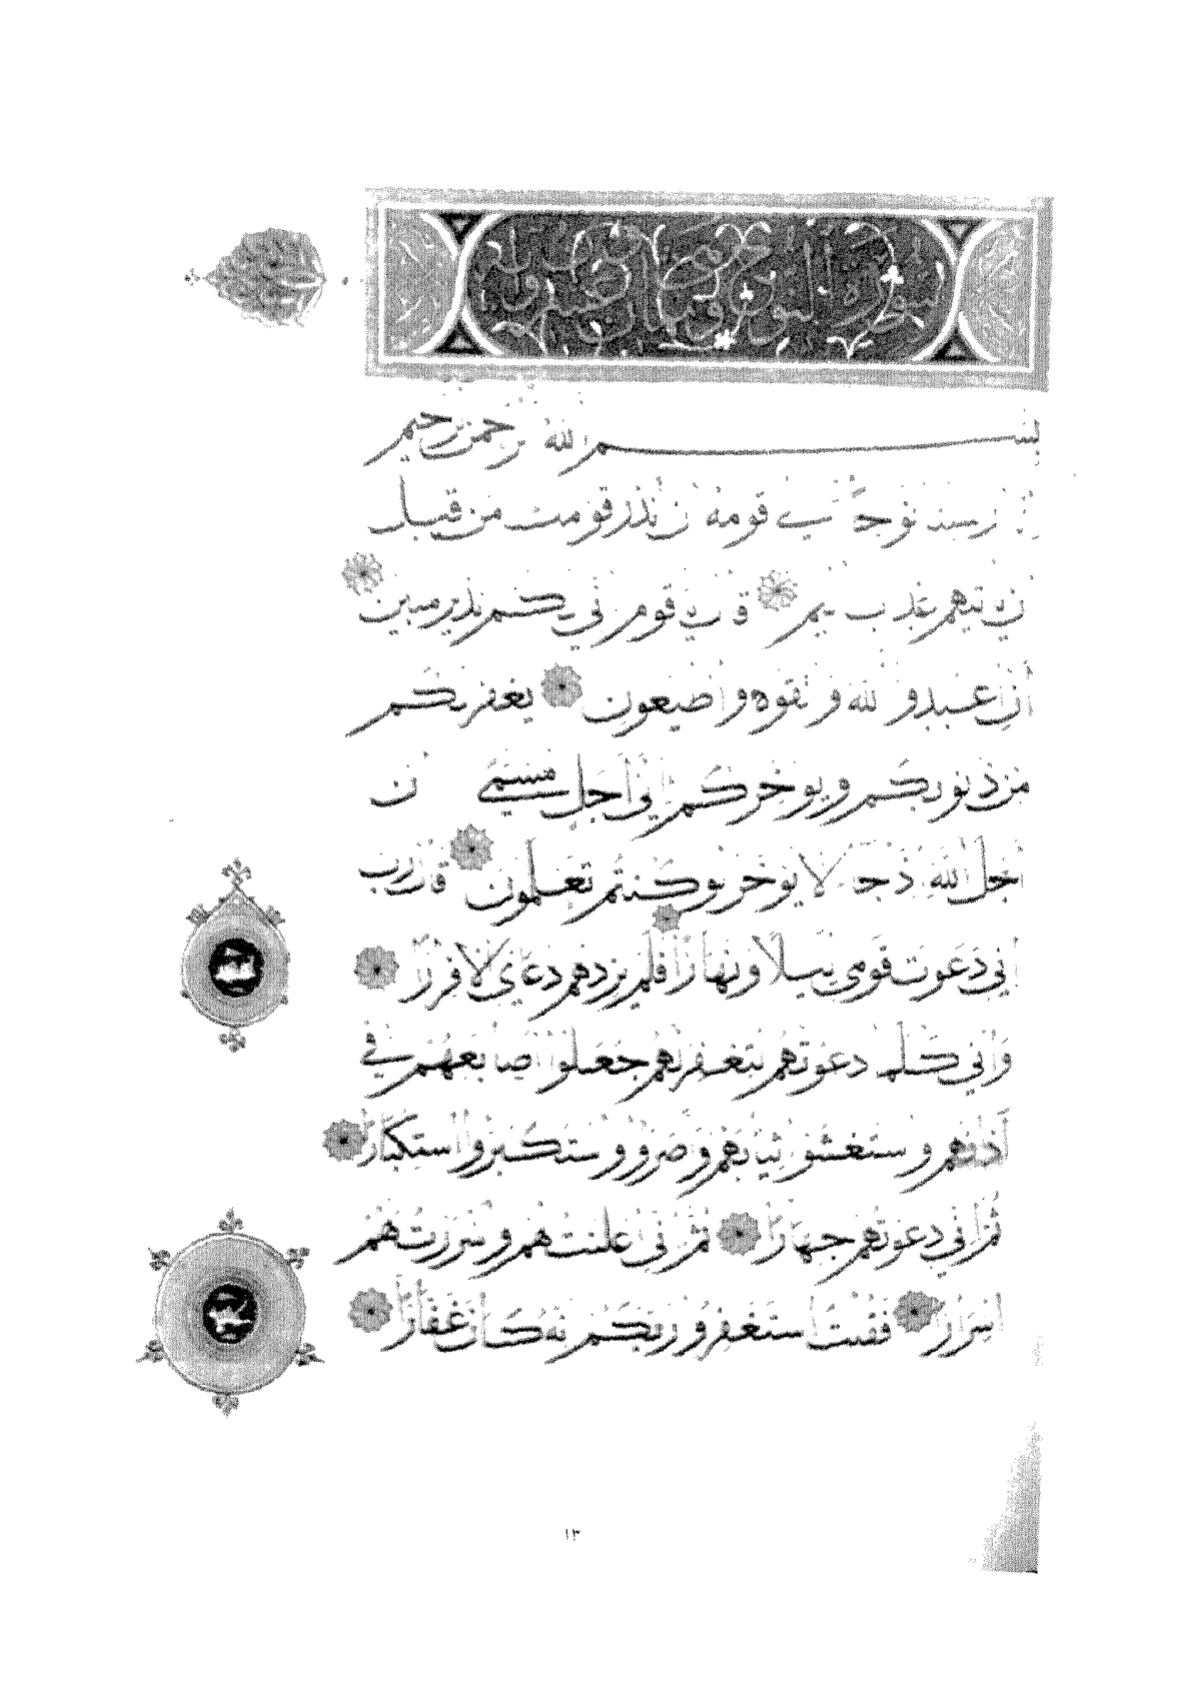 بسم الله الرحمن الرحيم
إنا أرسلنا نوحا إلى قومه أن أنذر قومك من قبل
أن يأتيهم عذاب أليم قال يا قوم إني لكم نذير مبين
أن اعبدوا الله واتقوه وأطيعون يغفر لكم
من ذنوبكم ويؤخركم إلى أجل مسمى إن
أجل الله إذا جاء لا يؤخر لو كنتم تعلمون قال رب
إني دعوت قومي ليلا ونهارا فلم يزدهم دعائي إلا فرارا
وإني كلما دعوتهم لتغفر لهم جعلوا أصابعهم في
آذانهم واستغشوا ثيابهم وأصروا واستكبروا استكبارا
ثم إني دعوتهم جهارا ثم إني أعلنت لهم وأسررت لهم
إسرارا فقلت استغفروا ربكم إنه كان غفارا
١٣